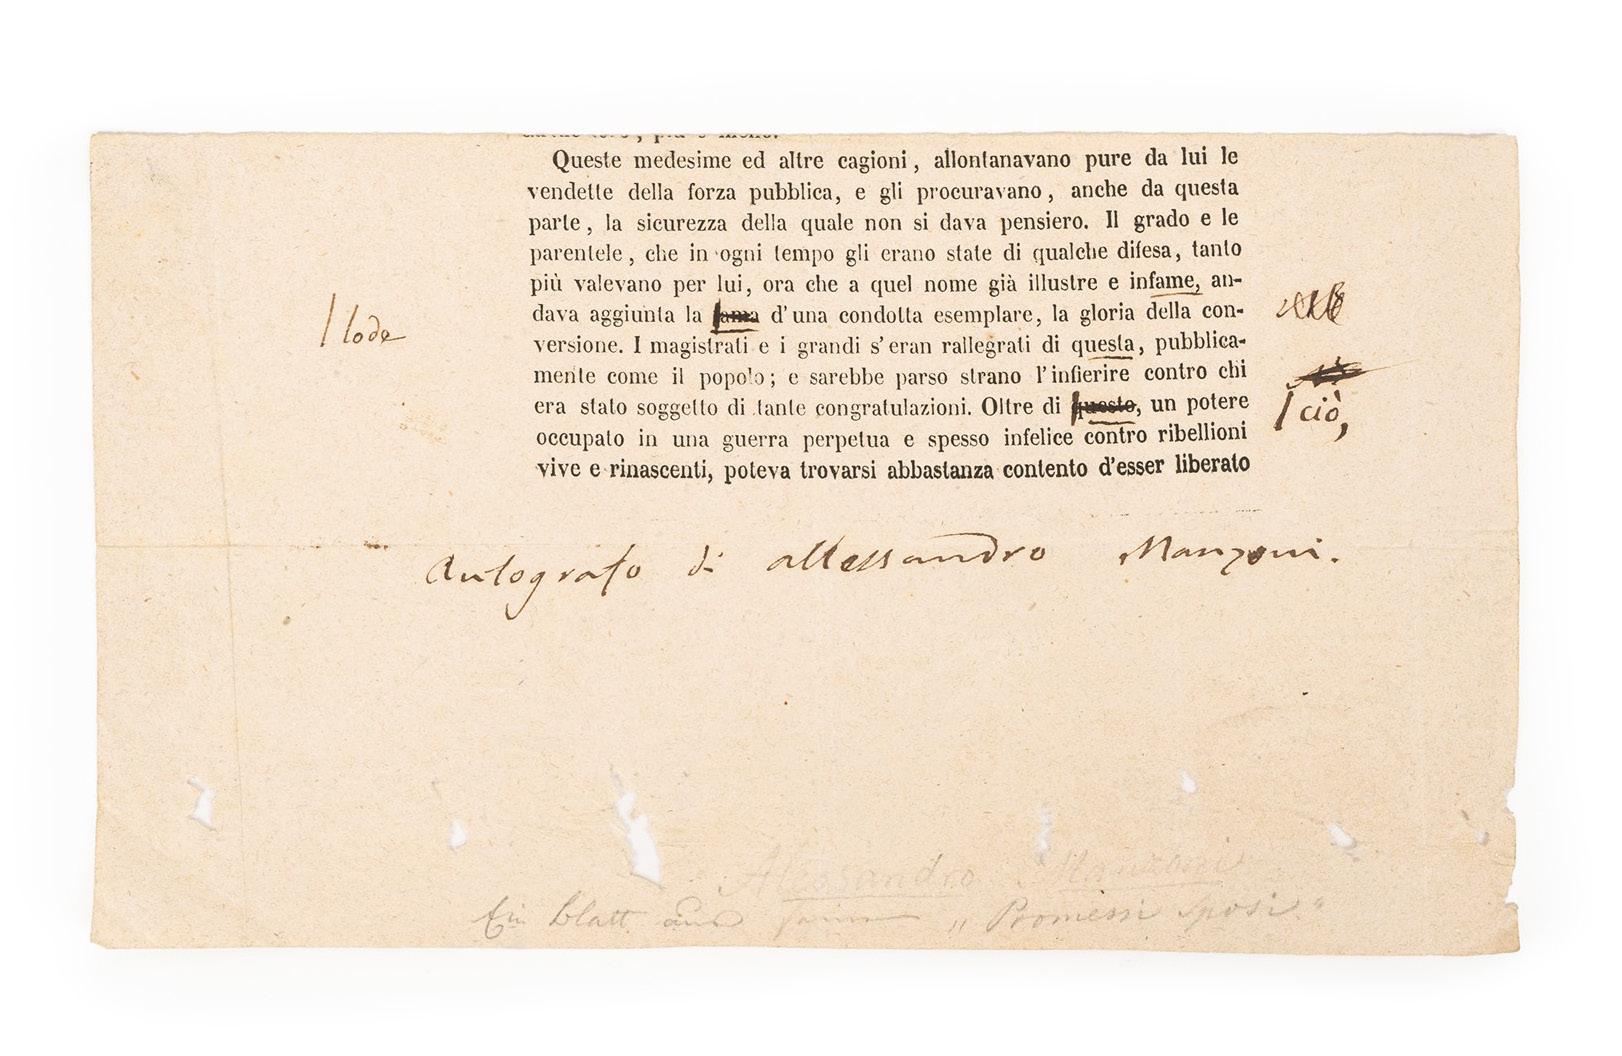 più o meno.
Queste medesime ed altre cagioni, allontanavano pure da lui le
vendette della forza pubblica, e gli procuravano, anche da questa
parte, la sicurezza della quale non si dava pensiero. Il grado e le
parentele, che in ogni tempo gli erano state di qualche difesa, tanto
più valevano per lui, ora che a quel nome già illustre e infame, an-
dava aggiunta la fama d'una condotta esemplare, la gloria della con-
lode
versione. I magistrati e i grandi s'eran rallegrati di questa, pubblica-
mente come il popolo; e sarebbe parso strano l'infierire contro chi
era stato soggetto di tante congratulazioni. Oltre di questo, un potere
ciò,
occupato in una guerra perpetua e spesso infelice contro ribellioni
vive e rinascenti, poteva trovarsi abbastanza contento d'esser liberato
Autografo di Allessandro Manzoni.
Alessandro Manzoni
Ein Blatt aus seinen „Promessi Sposi."